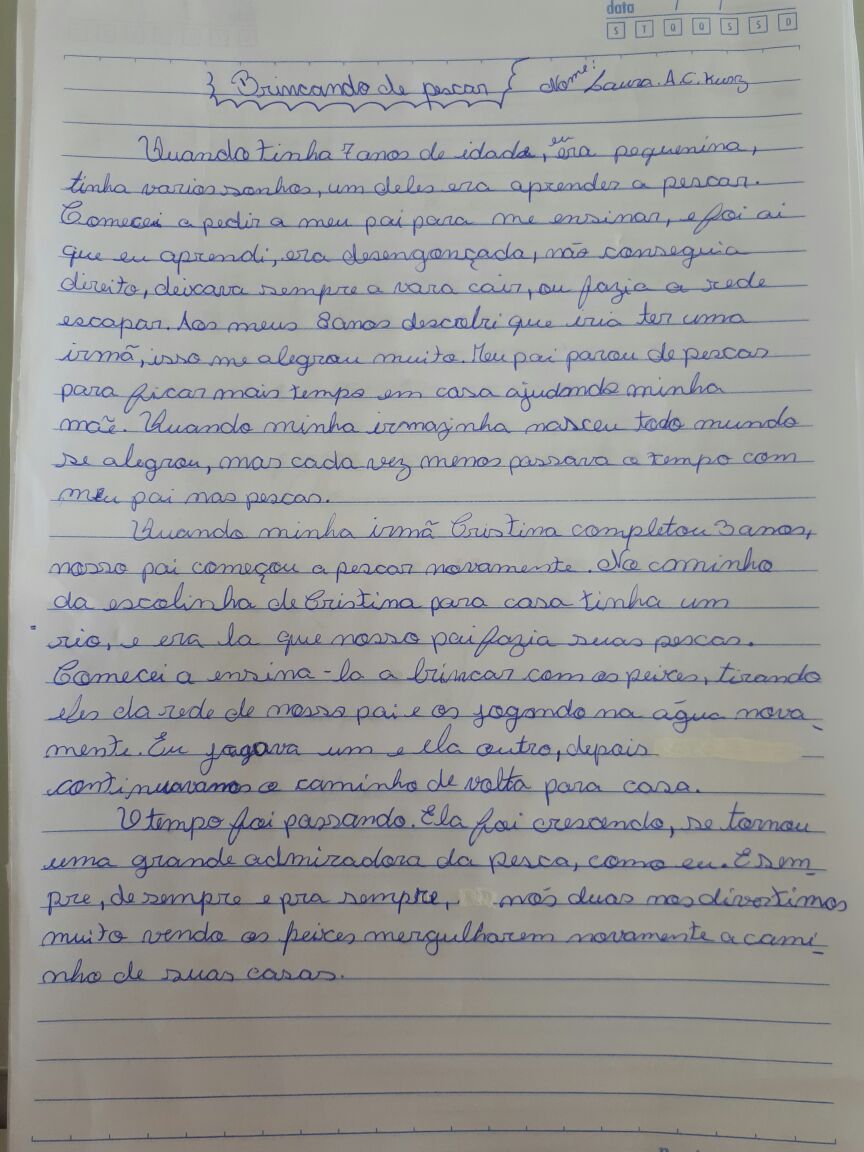 data / /
S T Q Q S S D
Brincando de pescar Nome: Laura. A. C. Kunz
Quando tinha 7 anos de idade, eu era pequenina,
tinha varios sonhos, um deles era aprender a pescar.
Comecei a pedir a meu pai para me ensinar, e foi ai
que eu aprendi, era desengonçada, não conseguia
direito, deixava sempre a vara cair, ou fazia a rede
escapar. Aos meus 8 anos descobri que iria ter uma
irmã, isso me alegrou muito. Meu pai parou de pescar
para ficar mais tempo em casa ajudando minha
mãe. Quando minha irmazinha nasceu todo mundo
se alegrou, mas cada vez menos passava o tempo com
meu pai nas pescas.
Quando minha irmã Cristina completou 3 anos,
nosso pai começou a pescar novamente. No caminho
da escolinha de Cristina para casa tinha um
rio, e era la que nosso pai fazia suas pescas.
Comecei a ensina-la a brincar com os peixes, tirando
eles da rede de nosso pai e os jogando na água nova-
mente. Eu jogava um e ela outro, depois
continuavamos o caminho de volta para casa.
O tempo foi passando. Ela foi crescendo, se tornou
uma grande admiradora da pesca, como eu. E sem-
pre, de sempre e pra sempre, nós duas nos divertimos
muito vendo os peixes mergulharem novamente a cami-
nho de suas casas.